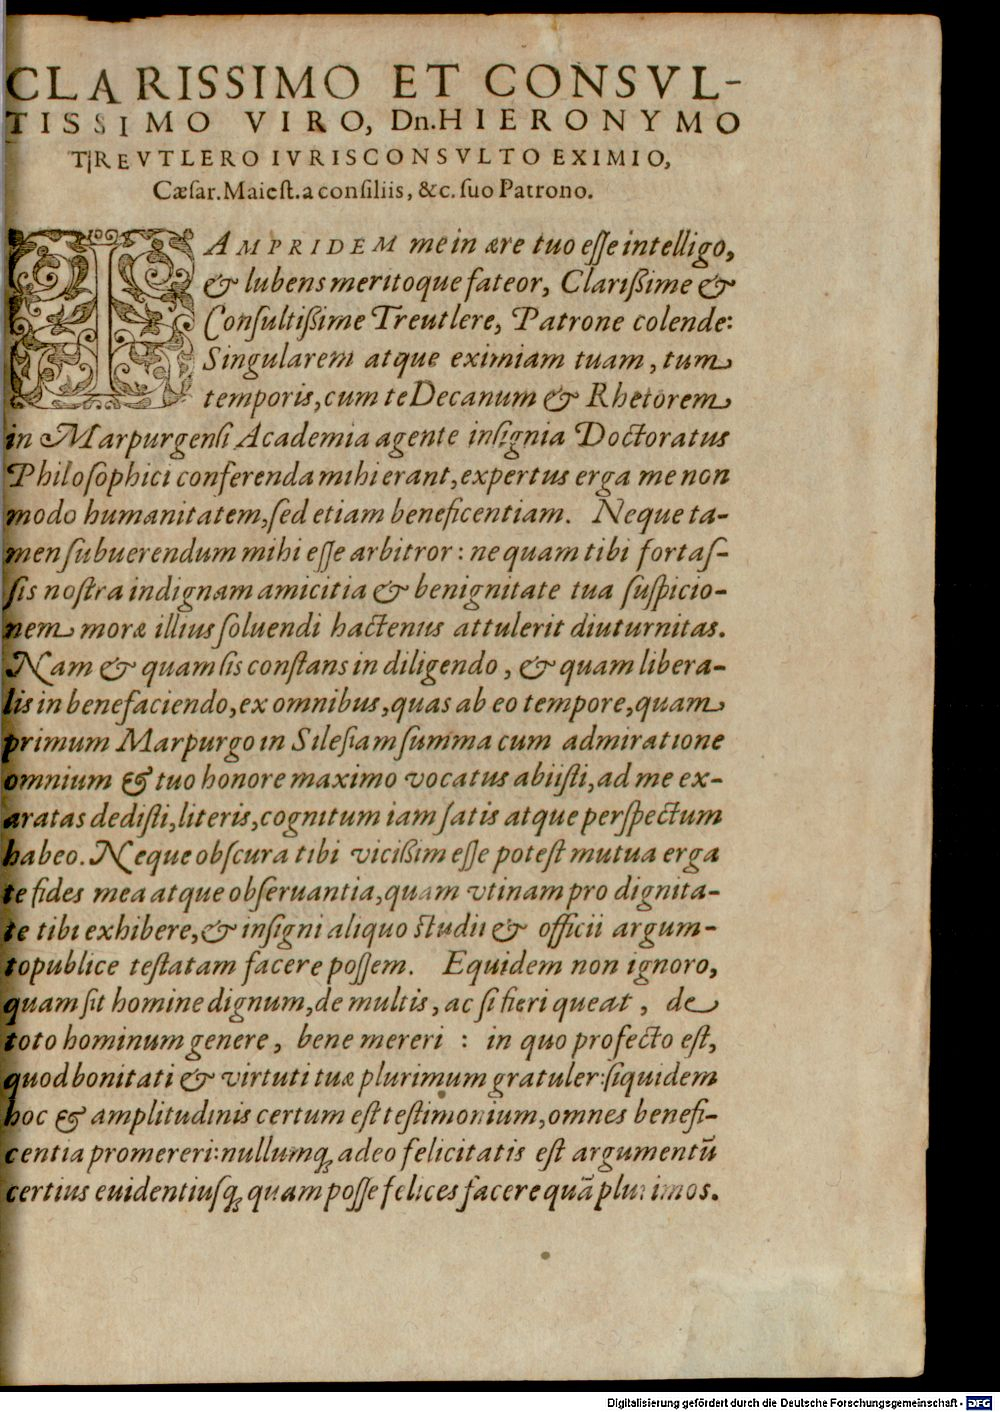 CLARISSIMO ET CONSVL-
TISSIMO VIRO, Dn. HIERONYMO
TREVTLERO IVRISCONSVLTO EXIMIO,
Cæſar. Maieſt. a conſiliis, &c. ſuo Patrono.
IAMPRIDEM me in ære tuo eſſe intelligo,
& lubens meritoque fateor, Clarißime &
Conſultißime Treutlere, Patrone colende:
Singularem atque eximiam tuam, tum
temporis, cum te Decanum & Rhetorem
in Marpurgenſi Academia agente inſignia Doctoratus
Philoſophici conferenda mihi erant, expertus erga me non
modo humanitatem, ſed etiam beneficentiam. Neque ta-
men ſubuerendum mihi eſſe arbitror: ne quam tibi fortaſ-
ſis noſtra indignam amicitia & benignitate tua ſuſpicio-
nem moræ illius ſoluendi hactenus attulerit diuturnitas.
Nam & quam ſis conſtans in diligendo, & quam libera-
lis in benefaciendo, ex omnibus, quas ab eo tempore, quam
primum Marpurgo in Sileſiam ſumma cum admiratione
omnium & tuo honore maximo vocatus abiiſti, ad me ex-
aratas dediſti, literis, cognitum iam ſatis atque perſpectum
habeo. Neque obſcura tibi vicißim eſſe poteſt mutua erga
te fides mea atque obſeruantia, quam vtinam pro dignita-
te tibi exhibere, & inſigni aliquo ſtudii & officii argum-
to publice teſtatam facere poſſem. Equidem non ignoro,
quam ſit homine dignum, de multis, ac ſi fieri queat, de
toto hominum genere, bene mereri: in quo profecto eſt,
quod bonitati & virtuti tuæ plurimum gratuler: ſiquidem
hoc & amplitudinis certum eſt teſtimonium, omnes benefi-
centia promereri: nullumq; adeo felicitatis eſt argumentū
certius euidentiuſq; quam poſſe felices facere quã plurimos.
Digitalisierung gefördert durch die Deutsche Forschungsgemeinschaft - DFG